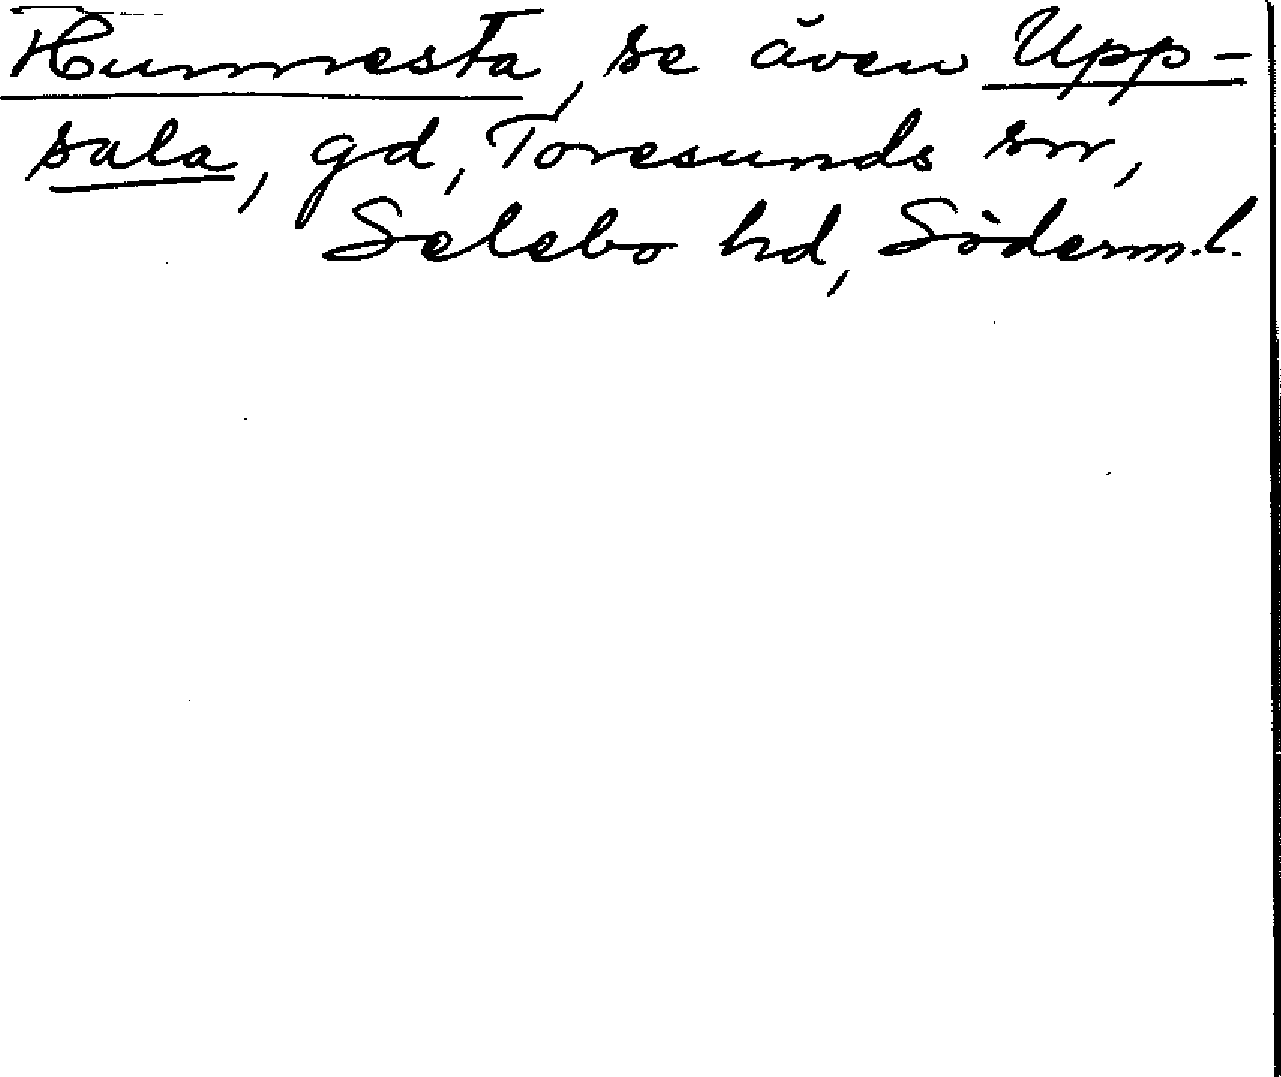 Hunnesta, se även Upp-
sala, gd, Toresunds sn,
Selebo hd, Söderm.l.